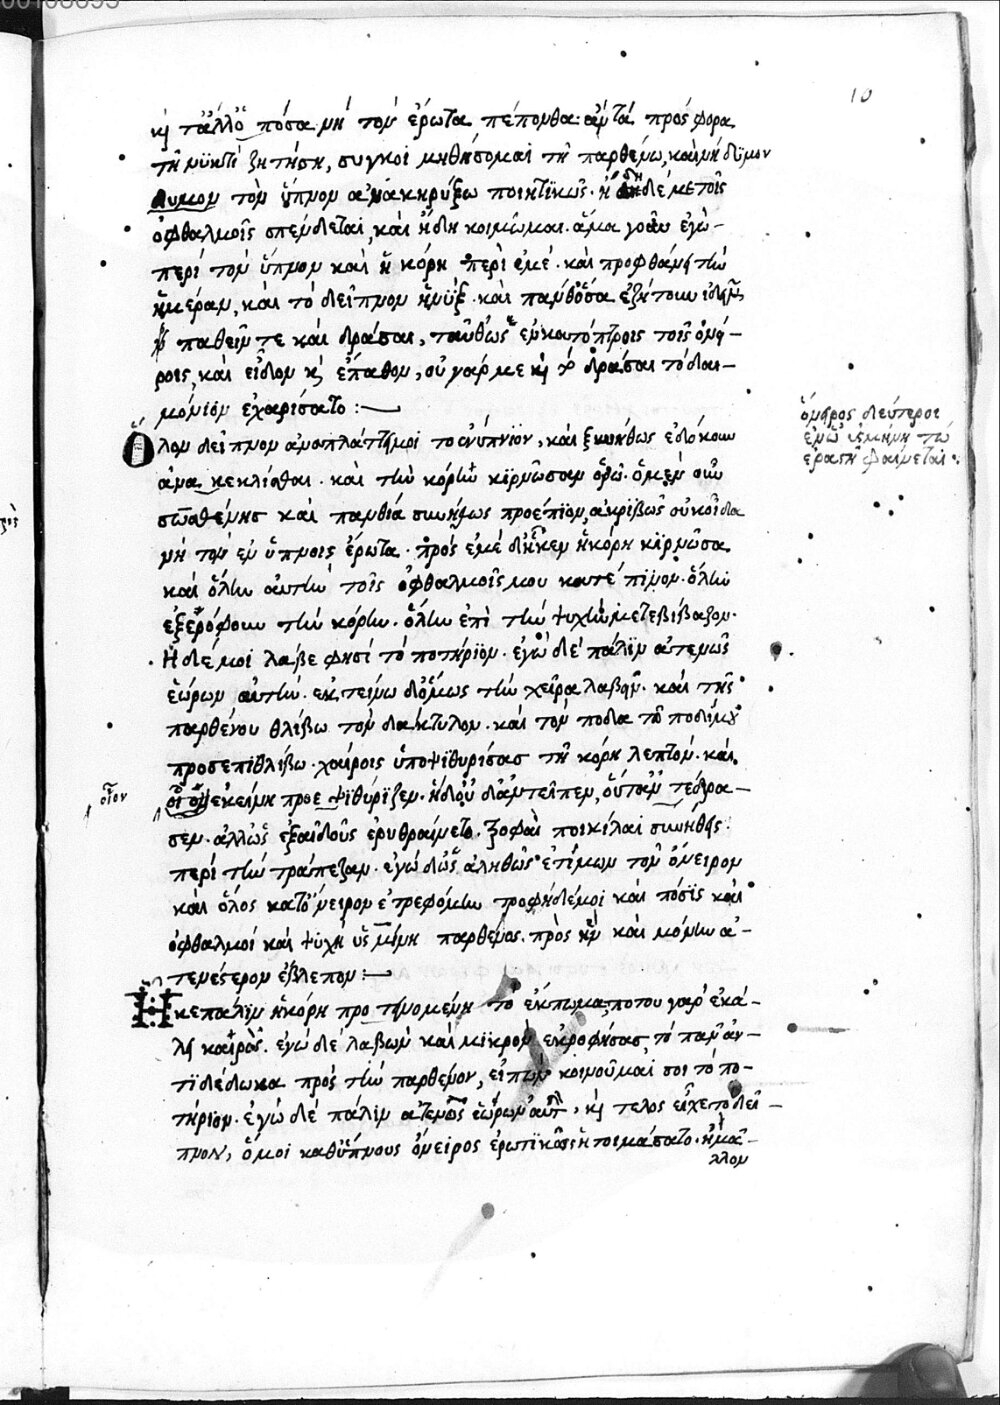 10
κὶ τἄλλο πόσα μὴ τὸν ἔρωτα πέπονθα· αὐτὰ πρόσφορα
τῇ νυκτὶ ζητήσῃ, συγκοιμηθήσομαι τῇ παρθένω, καὶ νήδυμον
τὸν ὕπνον ἀνακηρύξω ποιητικῶς. ἡ δέ με τοῖς
ὀφθαλμοῖς σπένδεται, καὶ ἤδη κοιμῶμαι. ἅμα γοῦν ἐγὼ
περὶ τὸν ὕπνον καὶ ἡ κόρη περὶ ἐμέ. καὶ προφθάνει τὴν
ἡμέραν, καὶ τὸ δεῖπνον ἡ νὺξ. καὶ πανθ' ὅσα ἐζήτουν ἰδεῖν,
παθεῖν τε καὶ δρᾶσαι, ταῦθ' ὡς ἐν κατόπτροις τοῖς ὀνεί-
ροις, καὶ εἶδον κὶ ἔπαθον, οὐ γάρ με κὶ τὸ δρᾶσαι τὸ δαι-
μόνιον ἐχαρίσατο :—
Ὅλον δεῖπνον ἀναπλάττει μοι τὸ ἐνύπνιον, καὶ ξυνήθως ἐδόκουν
ἀνακεκλίσθαι. καὶ τὴν κόρην κιρνῶσαν ὁρῶ. ὁ μὲν οὖν
σωσθένης καὶ πανθία συνήθως προέπιον, ἀκριβῶς οὐκ οἶδα
μὴ τὸν ἐν ὕπνοις ἔρωτα. πρὸς ἐμὲ διῆκεν ἡ κόρη κιρνῶσα
καὶ ὅλην αὐτὴν τοῖς ὀφθαλμοῖς μου κατέπινον. ὅλην
ἐξερόφουν τὴν κόρην. ὅλην ἐπὶ τὴν ψυχὴν μετεβίβαζον.
Ἡ δέ μοι λάβε φησὶ τὸ ποτήριον. ἐγὼ δὲ πάλιν ἀτενῶς
ἑώρων αὐτὴν. ἐκτείνω δ' ὅμως τὴν χεῖρα λαβεῖν. καὶ τῆς
παρθένου θλίβω τὸν δάκτυλον. καὶ τὸν πόδα τῶ ποδί μου
προσεπιθλίβω. χαίροις ὑποψιθυρίσας τῇ κόρῃ λεπτὸν. καὶ
ἐκείνη προεψιθύριζεν. ἡδὺ οὐδ' ἀντεῖπεν, οὔτ' ἀντέδρα-
σεν. ἀλλ' ὡς ἐξ αἰδοῦς ἐρυθραίνετο. τροφαὶ ποικίλαι συνήθεις
περὶ τὴν τράπεζαν. ἐγὼ δ' ὡς ἀληθῶς ἐτίμων τὸν ὄνειρον
καὶ ὅλος κατ' ὄνειρον ἐτρεφόμην τροφὴ δέ μοι καὶ πόσις καὶ
ὀφθαλμοὶ καὶ ψυχὴ ὑσμίνη παρθένος. πρὸς ἣν καὶ μόνην ἀ-
τενέστερον ἔβλεπον :—
Ἧκε πάλιν ἡ κόρη προτεινομένη τὸ ἔκπωμα, πότου γὰρ ἐκά-
λει καιρός. ἐγὼ δὲ λαβὼν καὶ μικρὸν ἐκροφήσας, τὸ πᾶν ἀν-
τιδέδωκα πρὸς τὴν παρθένον, εἰπὼν κοινοῦμαι σοι τὸ πο-
τήριον. ἐγὼ δὲ πάλιν ἀτενῶς ἑώρων αὐτὴν, κὶ τέλος εἶχε τὸ δεῖ-
πνον, ὅ μοι καθ' ὕπνους ὄνειρος ἐρωτικῶς ἡτοιμάσατο. ἢ μᾶ-
λλον
ὅμηρος δεύτεροι
ἐρᾶσῃ φαίνεται
οἷον